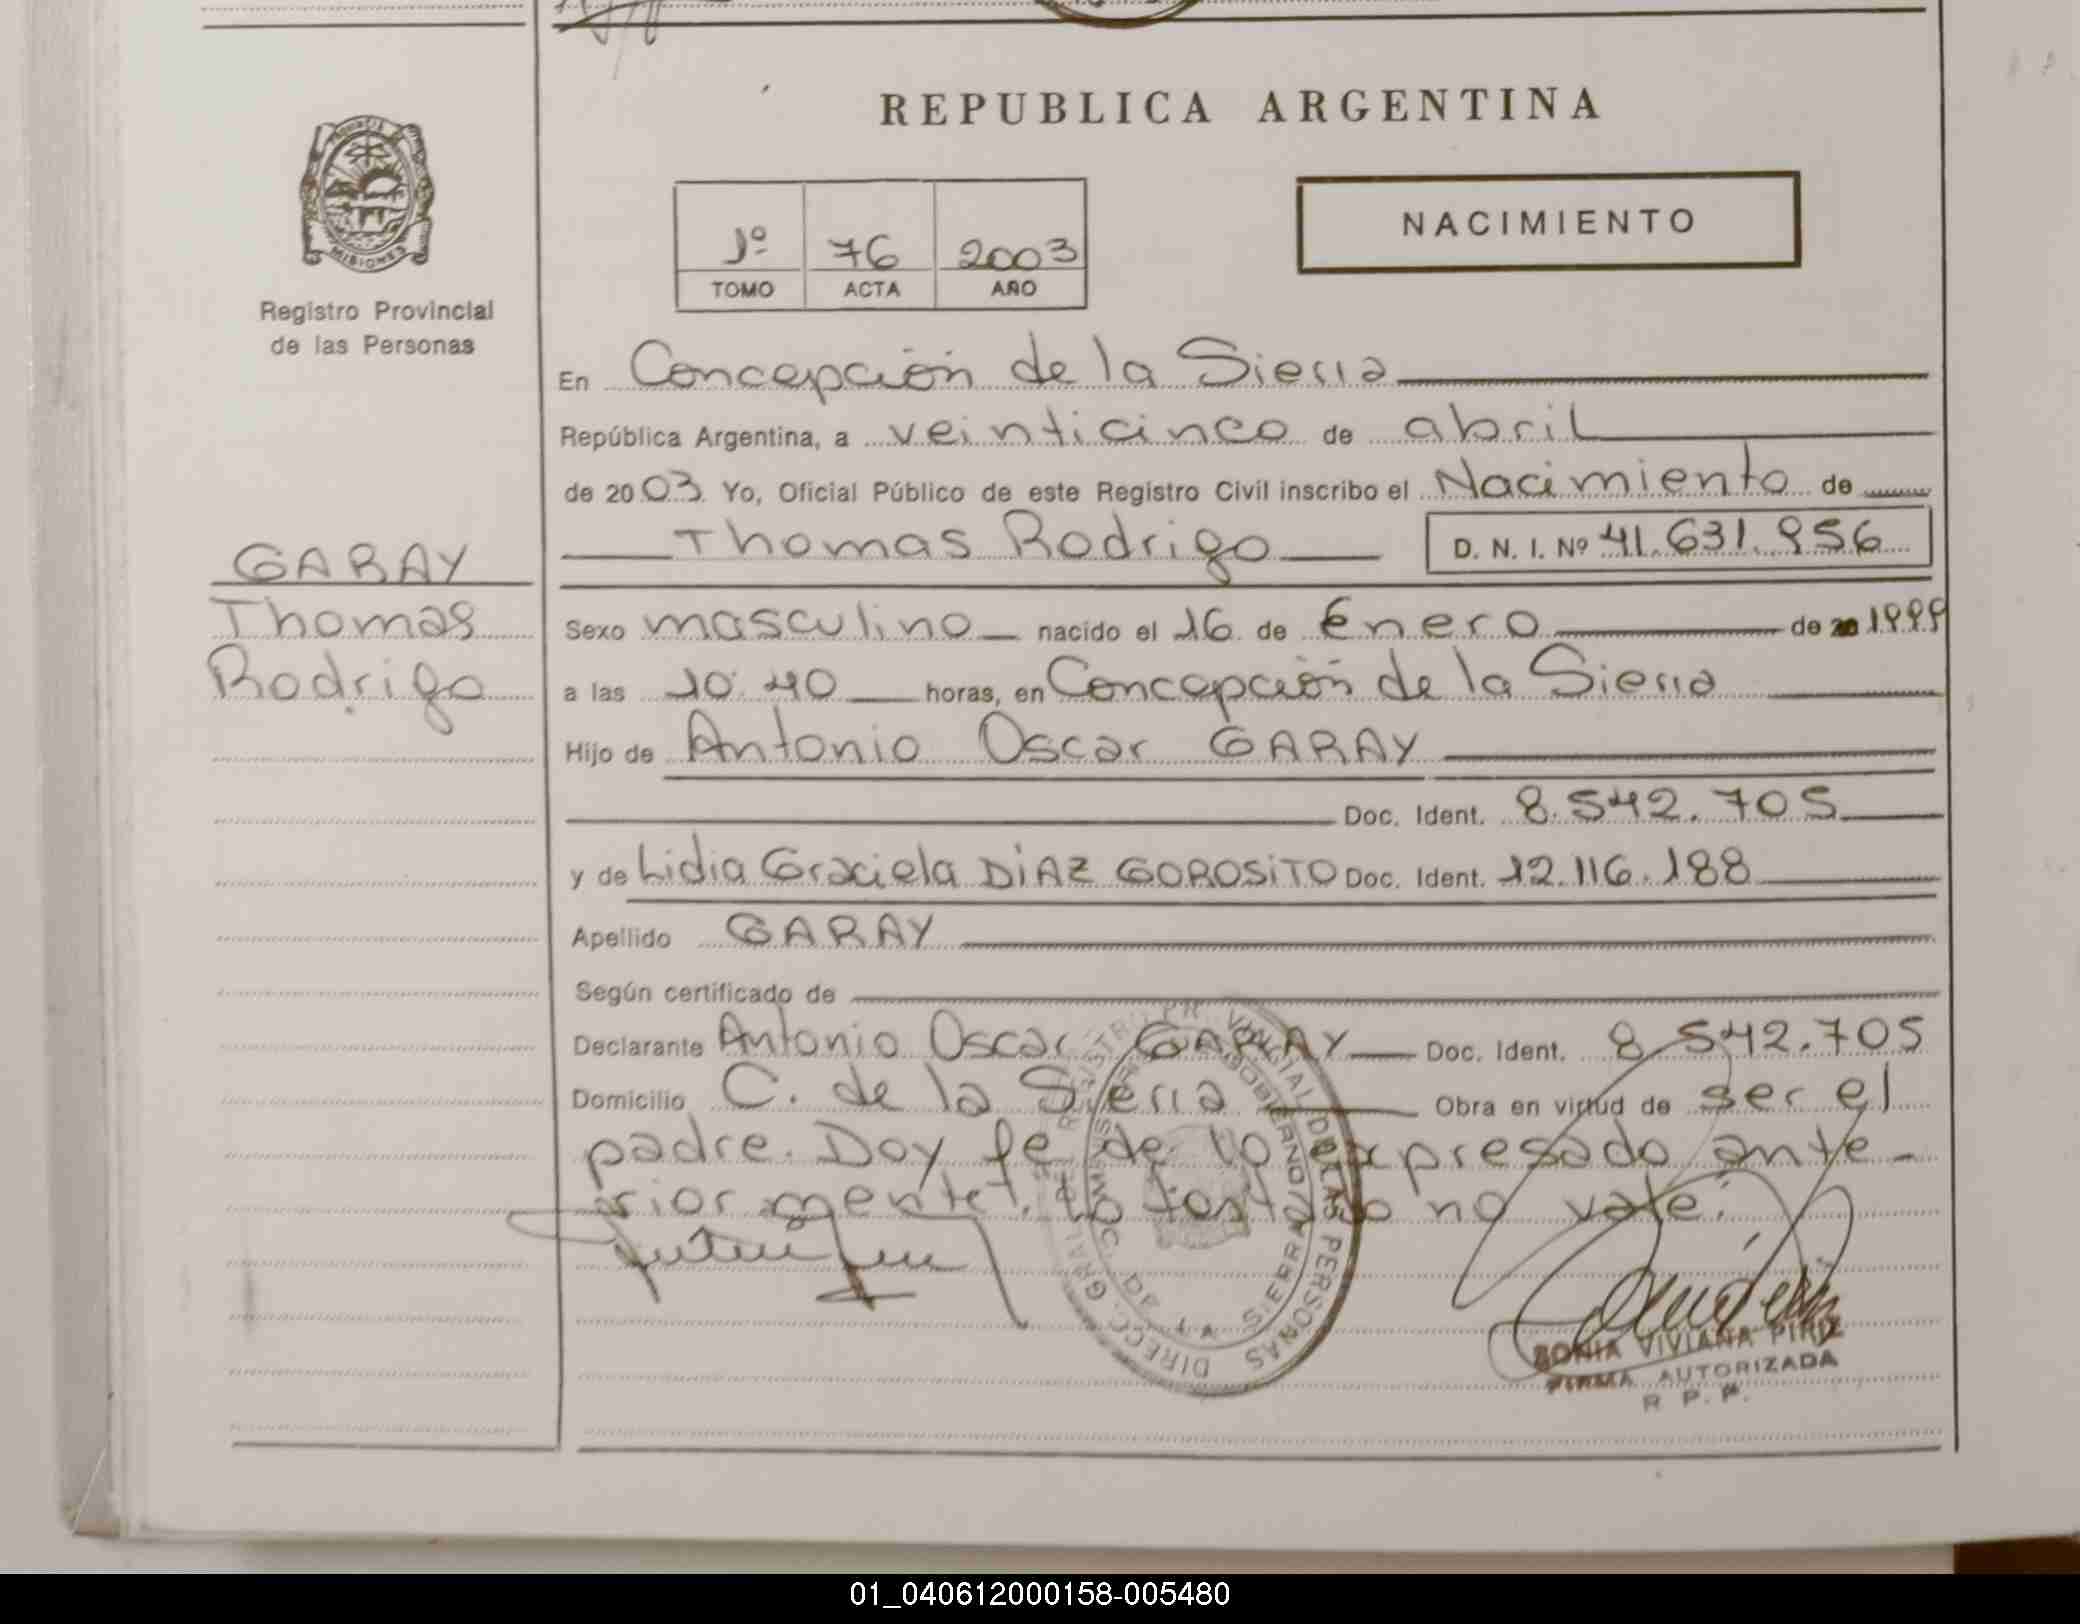 REPUBLICA ARGENTINA
MISIONES
Registro Provincial
de las Personas
NACIMIENTO
1º 76 2003
TOMO ACTA AÑO
En Concepción de la Sierra
República Argentina, a veinticinco de abril
de 2003. Yo, Oficial Público de este Registro Civil inscribo el Nacimiento de
Thomas Rodrigo D. N. I. Nº 41.631.956
GARAY
Thomas
Rodrigo
Sexo masculino nacido el 16 de Enero de 20 1999
a las 10:40 horas, en Concepción de la Sierra
Hijo de Antonio Oscar GARAY
Doc. Ident. 8.542.705
y de Lidia Graciela DiAZ GOROSiTO Doc. Ident. 12.116.188
Apellido GARAY
Según certificado de
Declarante Antonio Oscar GARAY Doc. Ident. 8.542.705
Domicilio C. de la Sierra Obra en virtud de ser el
padre. Doy fe de lo expresado ante-
riormente. Lo testado no vale.
SONIA VIVIANA PIRIZ
FIRMA AUTORIZADA
R. P. P.
01_040612000158-005480